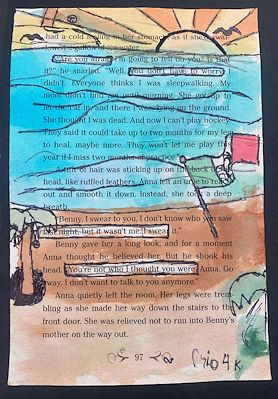 had a cold feeling in her stomach, as if she'd swal-
lowed a gallon of ice water.
"Are you afraid I'm going to tell on you, is that
it?" he snarled. "Well, you don't have to worry. I
didn't. EVeryone thinks I was sleepwalking. My
mom didn't find me until morning. She got up to
let the cat in, and there I was lying on the ground.
She thought I was dead. And now I can't play hockey.
They said it could take up to two months for my leg
to heal, maybe more. They won't let me play this
year if I miss two months of practice."
A tuft of hair was sticking up on the back of
head, like ruffled feathers. Anna felt an urge to reach
out and smooth it down. Instead, she took a deep
breath.
"Benny, I swear to you, I don't know who you saw
last night, but it wasn't me. I swear it."
Benny gave her a long look, and for a moment
Anna thought he believed her. But he shook his
head. "You're not who I thought you were, Anna. Go
away. I don't want to talk to you anymore."
Anna quietly left the room. Her legs were trem-
bling as she made her way down the stairs to the
front door. She was relieved not to run into Benny's
mother on the way out.
97